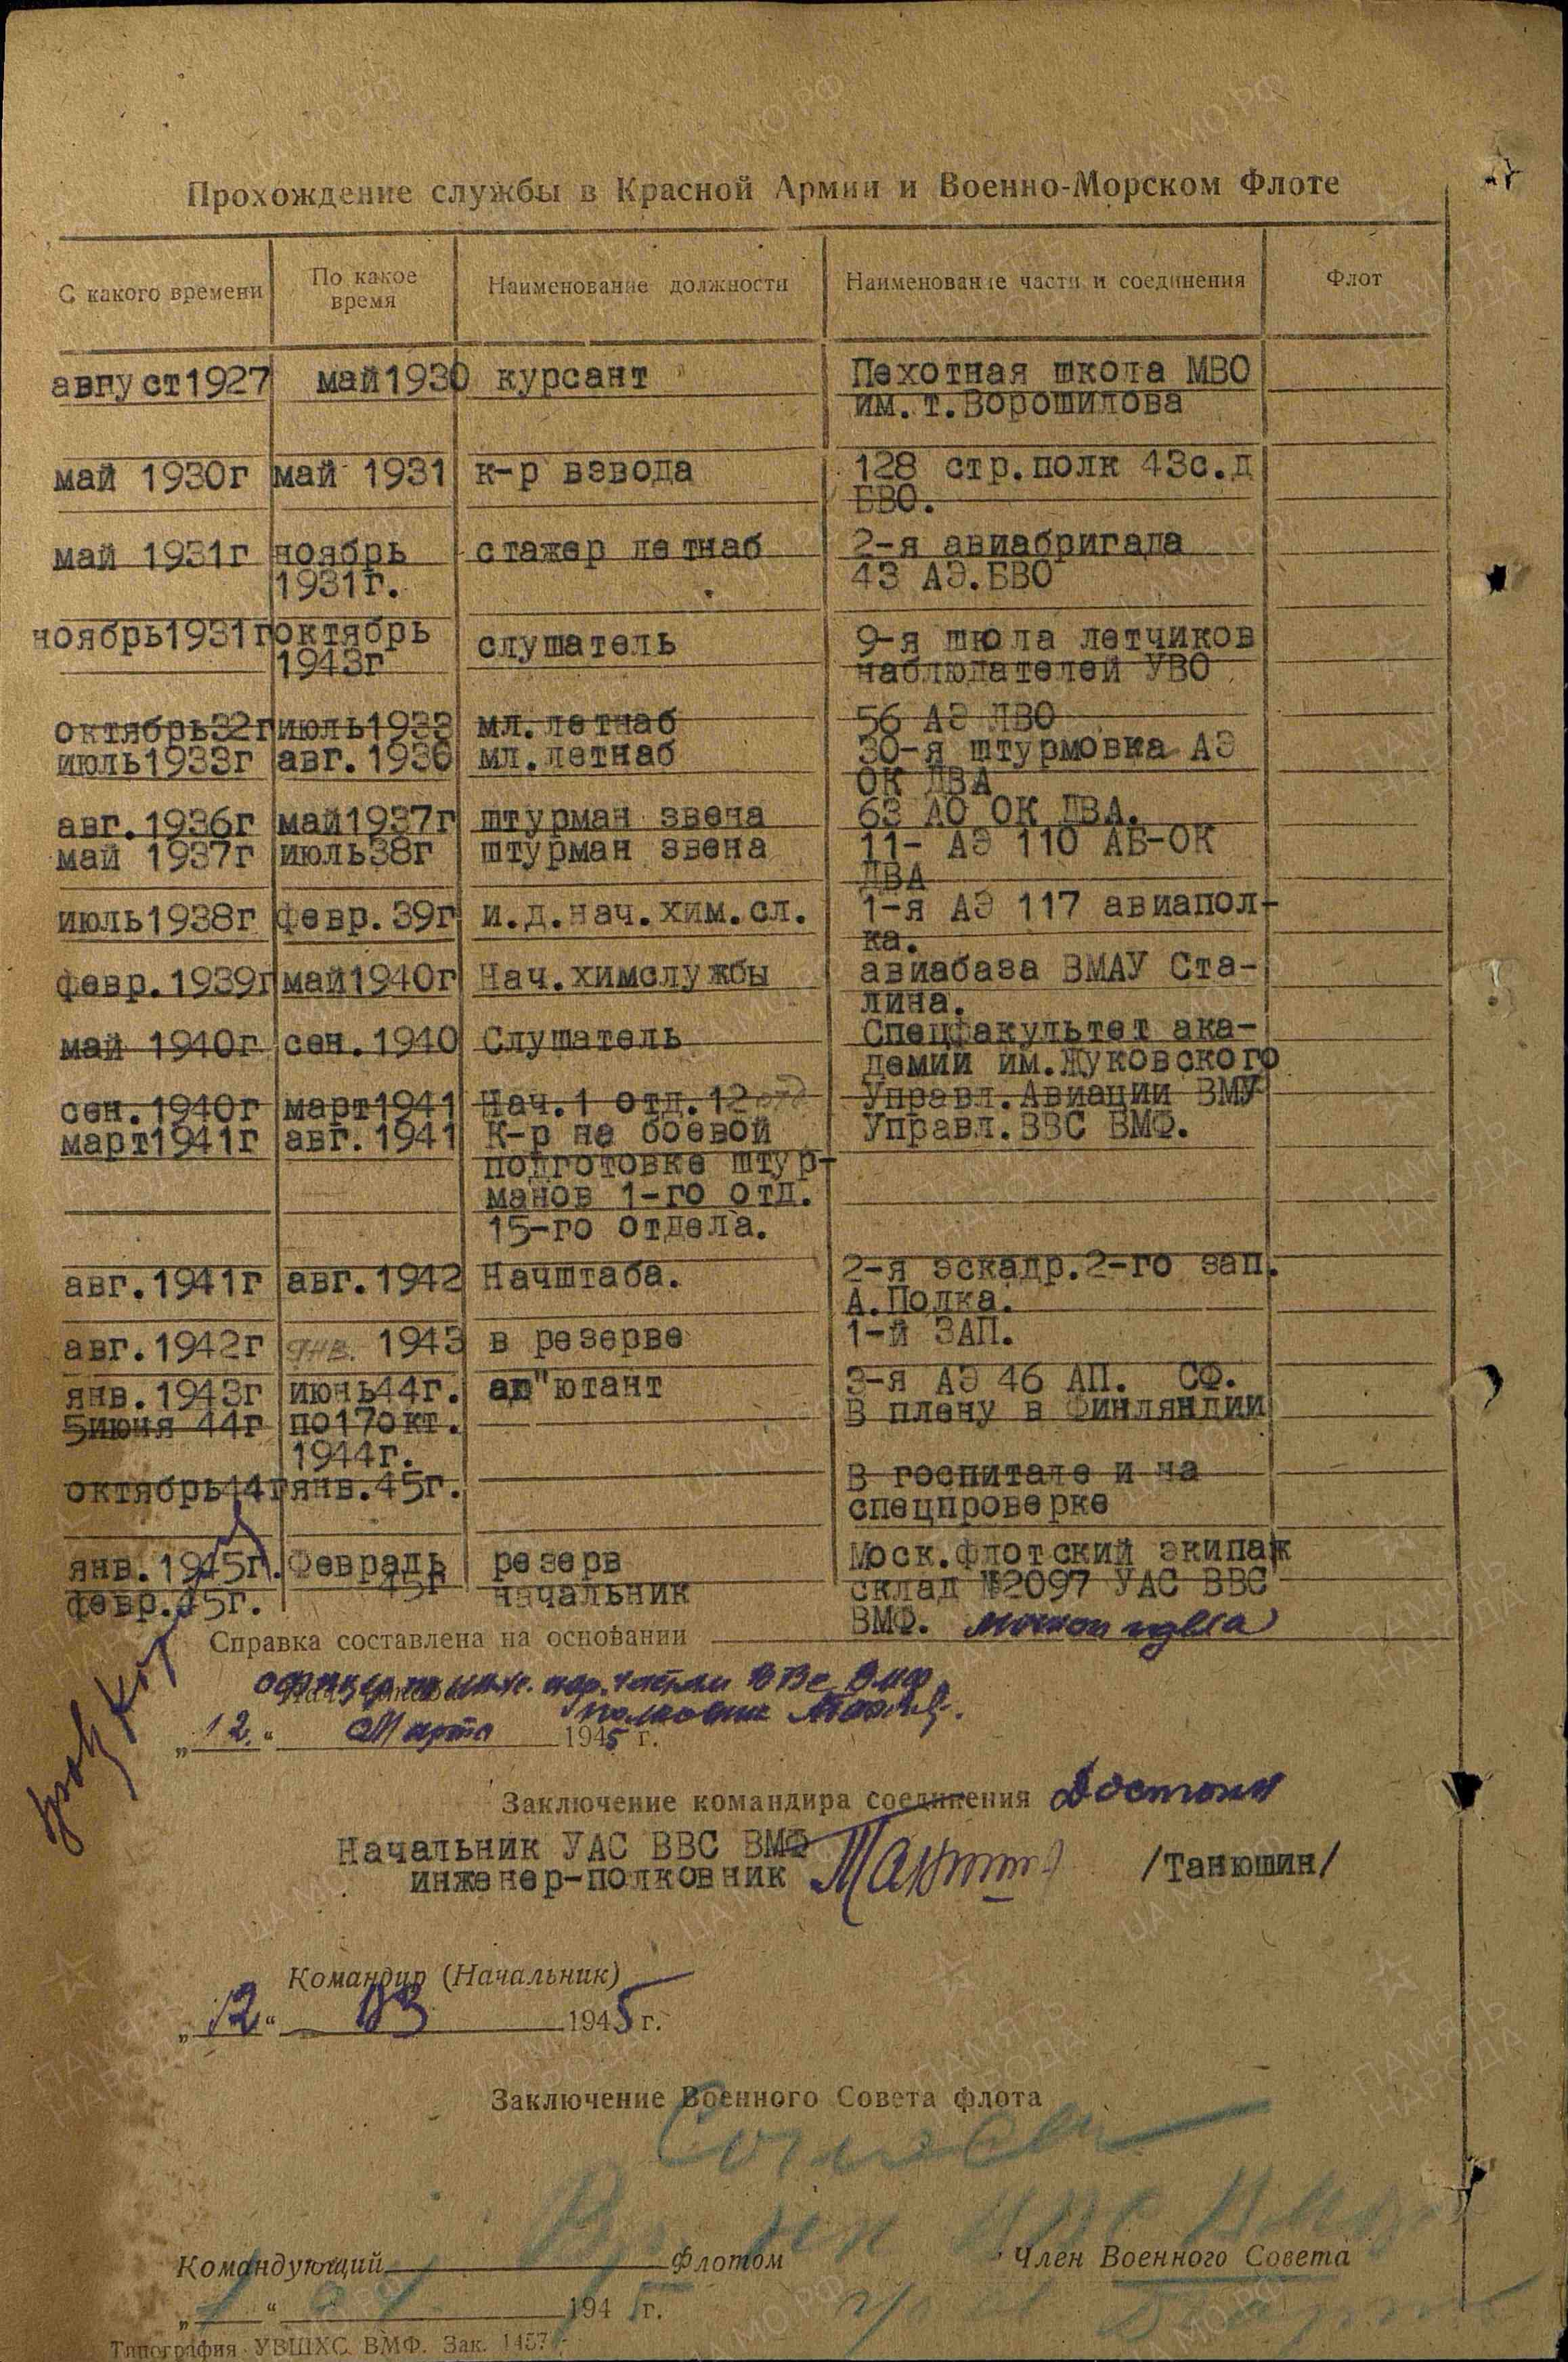 Прохождение службы в Красной Армии и Военно-Морском Флоте
С какого времени По какое время Наименование должности Наименование части и соединения Флот
август1927 май1930 курсант Пехотная школа МВО
им.т.Ворошилова
май 1930г май 1931 к-р взвода 128 стр.полк 43с.д
БВО.
май 1931г ноябрь стажер летнаб 2-я авиабригада
1931г. 43 АЭ.БВО
ноябрь1931г октябрь слушатель 9-я школа летчиков
1943г наблюдателей УВО
октябрь32г июль1933 мл.летнаб 56 АЭ ЛВО
июль1933г авг.1936 мл.летнаб 30-я штурмовка АЭ
ОК ДВА
авг.1936г май1937г штурман звена 63 АО ОК ДВА.
май 1937г июль38г штурман звена 11- АЭ 110 АБ-ОК
ДВА
июль1938г февр.39г и.д.нач.хим.сл. 1-я АЭ 117 авиапол-
ка.
февр.1939г май1940г Нач.химслужбы авиабаза ВМАУ Ста-
лина.
май 1940г сен.1940 Слушатель Спецфакультет ака-
демии им.Жуковского
сен.1940г март1941 Нач.1 отд.12 отд Управл.Авиации ВМУ
март1941г авг.1941 К-р не боевой Управл.ВВС ВМФ.
подготовке штур-
манов 1-го отд.
15-го отдела.
авг.1941г авг.1942 Начштаба. 2-я эскадр.2-го зап.
А.Полка.
авг.1942г янв. 1943 в резерве 1-й ЗАП.
янв.1943г июнь44г. ад"ютант 3-я АЭ 46 АП. СФ.
5июня 44г по17окт. В плену в Финляндии
1944г.
октябрь44г янв.45г. В госпитале и на
спецпроверке
янв.1945г. Февраль резерв Моск.флотский экипаж
45г
февр.45г. начальник склад №2097 УАС ВВС
ВМФ.
Справка составлена на основании
„12.“ Марта 1945 г.
Заключение командира соединения Достоин
Начальник УАС ВВС ВМФ
инженер-полковник /Танюшин/
Командир (Начальник)
„12“ 03 1945 г.
Заключение Военного Совета флота
Командующий Флотом Член Военного Совета
„ “ 1945 г.
Типография УВШХС ВМФ. Зак. 1457
ПАМЯТЬ НАРОДА
ЦА МО.РФ